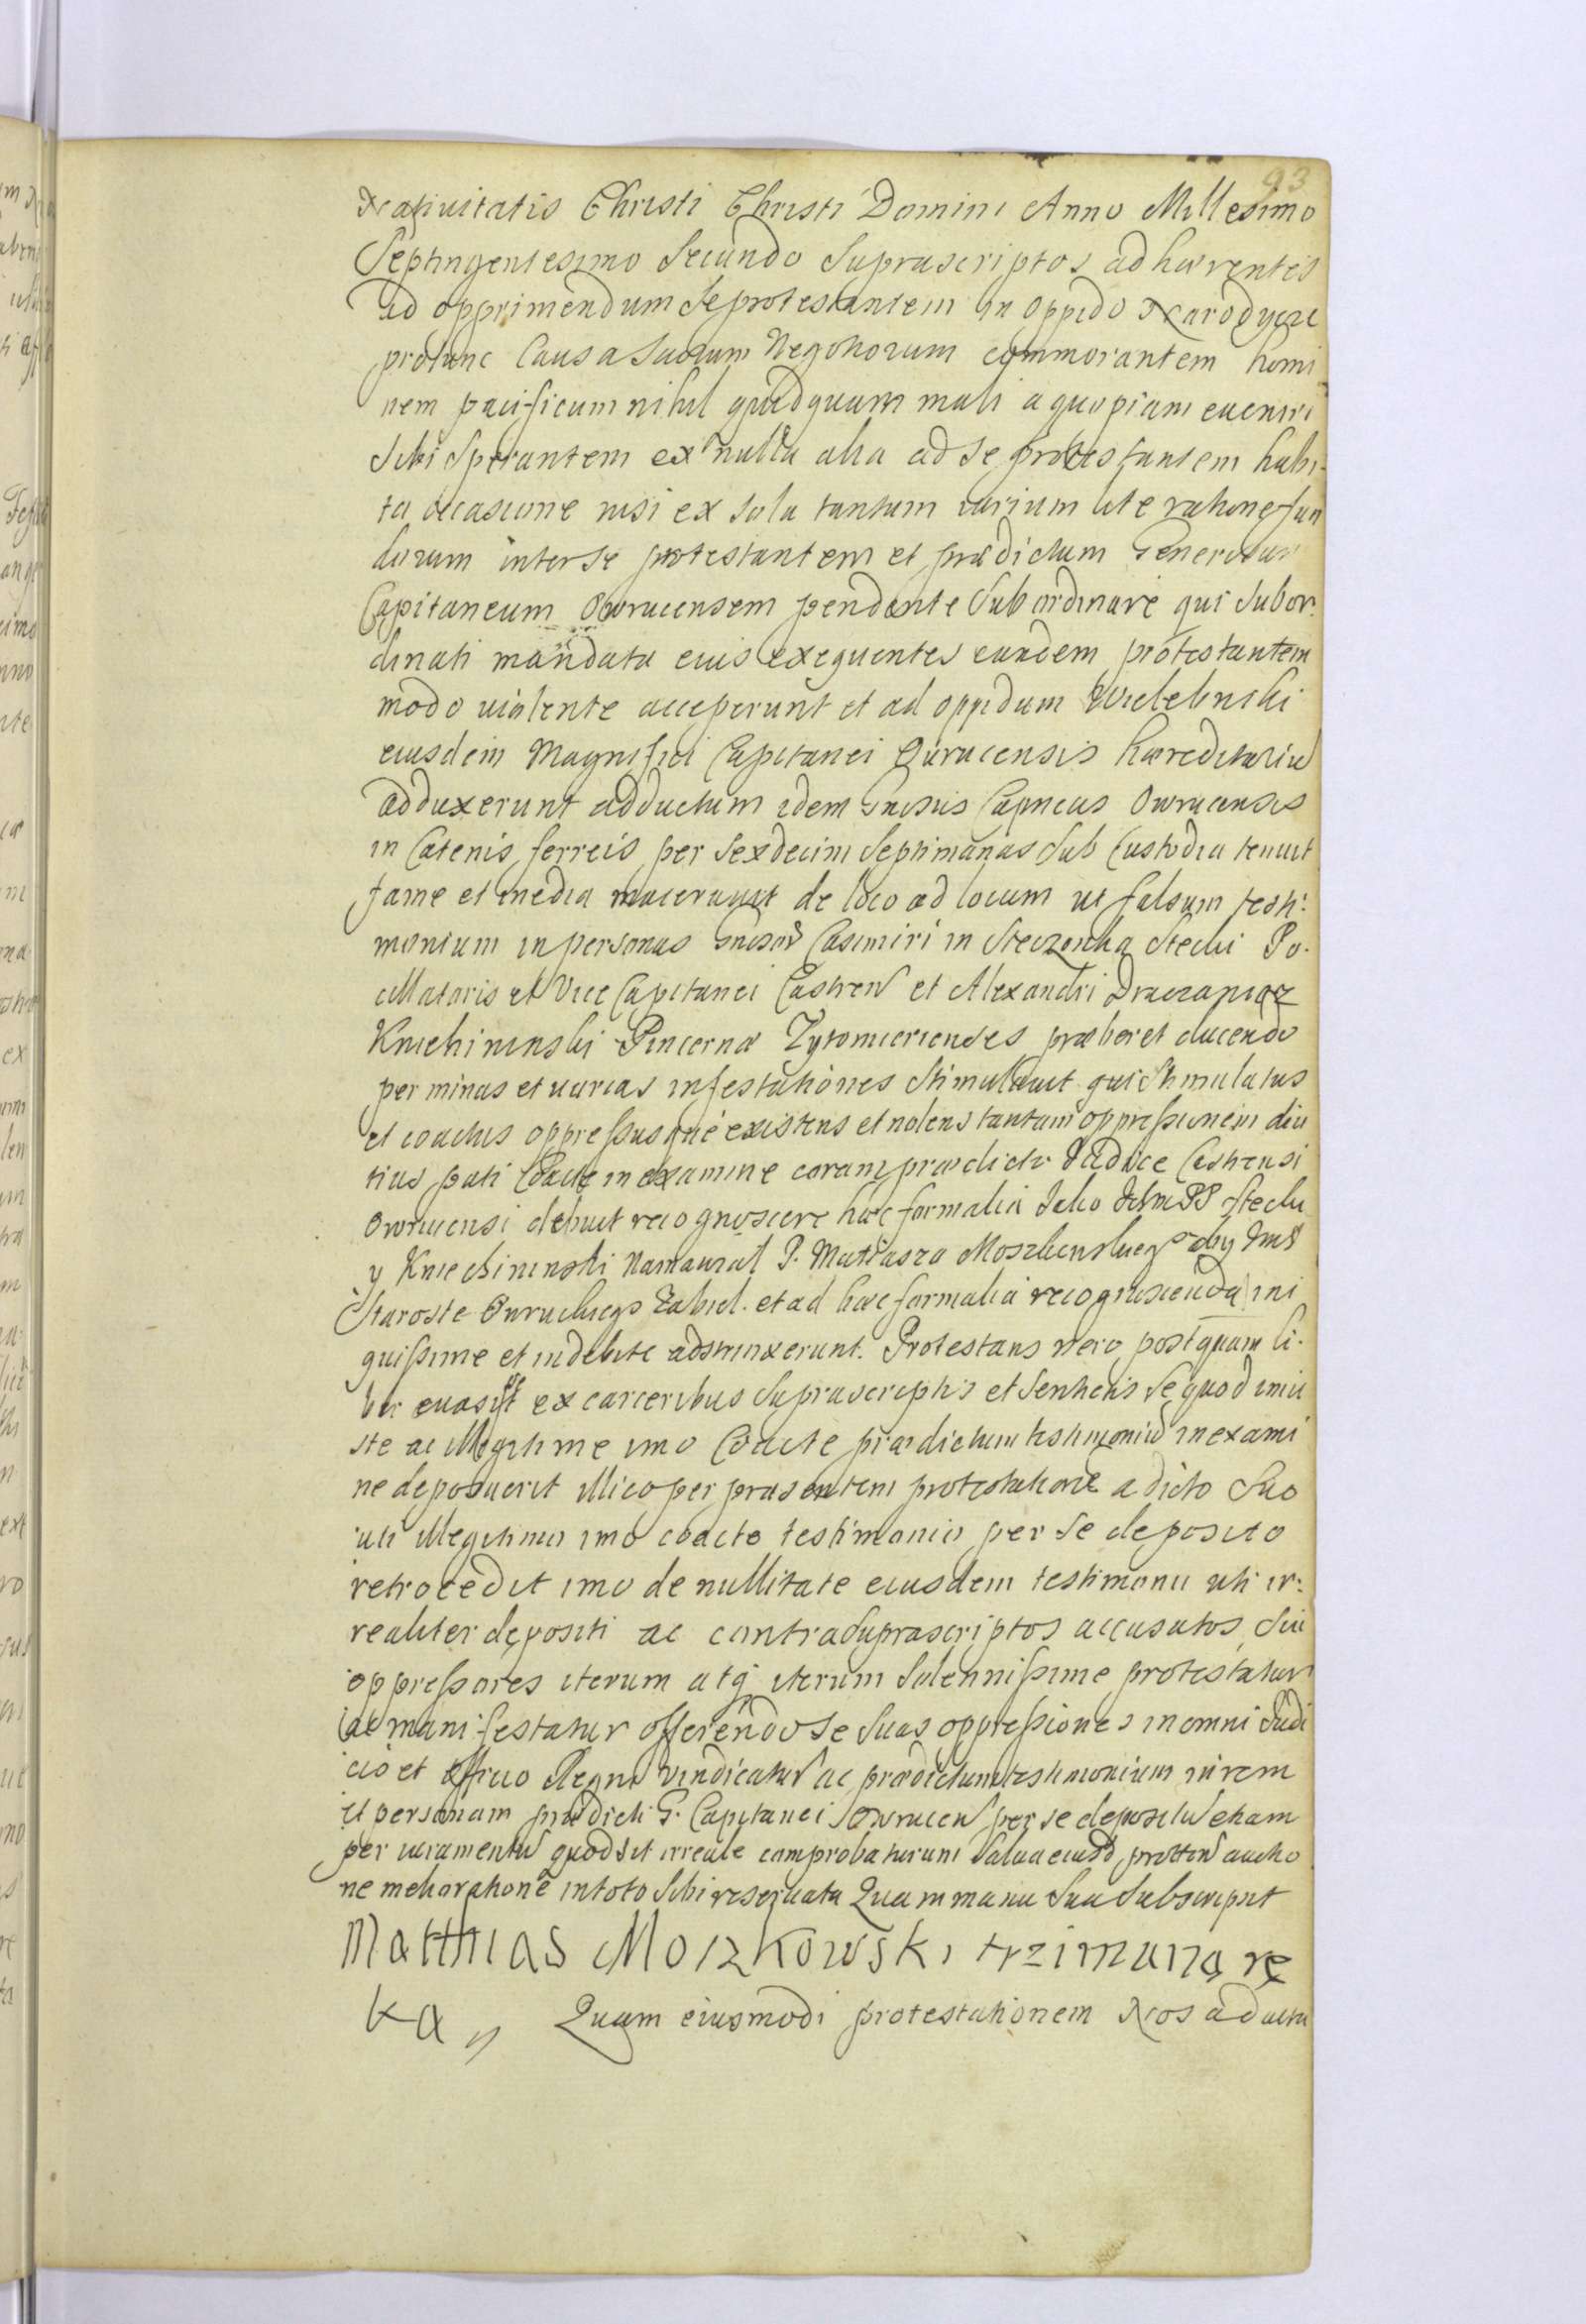 93
Nativitatis Christi Christi Domini Anno Millesimo
Septingentesimo Secundo Suprascriptos adhærentes
ad opprimendum Se protestantem in oppido Narodycze
protunc Causa Suorum Negotiorum commorantem homi
nem pacificum nihil quidquam mali a quopiam eveniri
Sibi Sperantem ex nulla alia ad se protestantem habi-
ta occasione nisi ex sola tantum iurium lite ratione fun
dorum inter se protestantem et prædictum Generosum
Capitaneum Owrucensem pendente Subordinare qui Subor
dinati mandata eius exequentes eundem protestantem
modo violente acceperunt et ad oppidum Wielednicki
eiusdem Magnifici Capitanei Owrucensis hæreditariũ
adduxerunt adductum idem Gnosus Capneus Owrucensis
in Catenis ferreis per Sexdecim Septimanas Sub Custodia tenuit
fame et inedia maceravit de loco ad locum ut falsum testi-
monium in personas Gnosor Casimiri in Steczonka Stecki Po-
cillatoris et Vice Capitanei Castren et Alexandri
Kniehininski Pincernæ Zytomiriensis præberet ducendo
per minas et varias infestationes Stimulavit qui Stimulatus
et coactus oppressusque existens et nolens tantam oppressionem diu
tius pati Coacte in examine coram prædicto Iudice Castrensi
Owrucensi debuit recognoscere hæc formalia Jako Stecki
y Kniehininski Namawial P. Matiasza aby
Staroste Owruckiego Zabiel. et ad hæc formalia recognoscenda ini
quissime et indebite adstrinxerunt. Protestans vero postquam li-
ber evasit ex carceribus Suprascriptis et Sentiens Se quod iniu
ste ac illegitime imo Coacte prædictum testimoniũ in exami
ne deposuerit illico per præsentem protestationẽ a dicto Suo
uti illegitimo imo coacto testimonio per se deposito
retrocedit imo de nullitate eiusdem testimonii uti ir-
realiter depositi ac contra Suprascriptos accusatos Sui
oppressores iterum atq iterum Solennissime protestatur
ac manifestatur offerendo Se Suas oppressiones in omni Iudi
cio et officio Regni vindicatur ac prædictum testimonium in rem
et personam prædicti G. Capitanei Owrucen per se depositũ etiam
per iuramentũ quod sit irreale comprobaturum Salva eiusd prottis auctio
ne melioratione in toto Sibi reservata Quam manu Sua Subscripsit
Matthias Moszkowski trzimana rę
ka „ Quam eiusmodi protestationem Nos ad actu